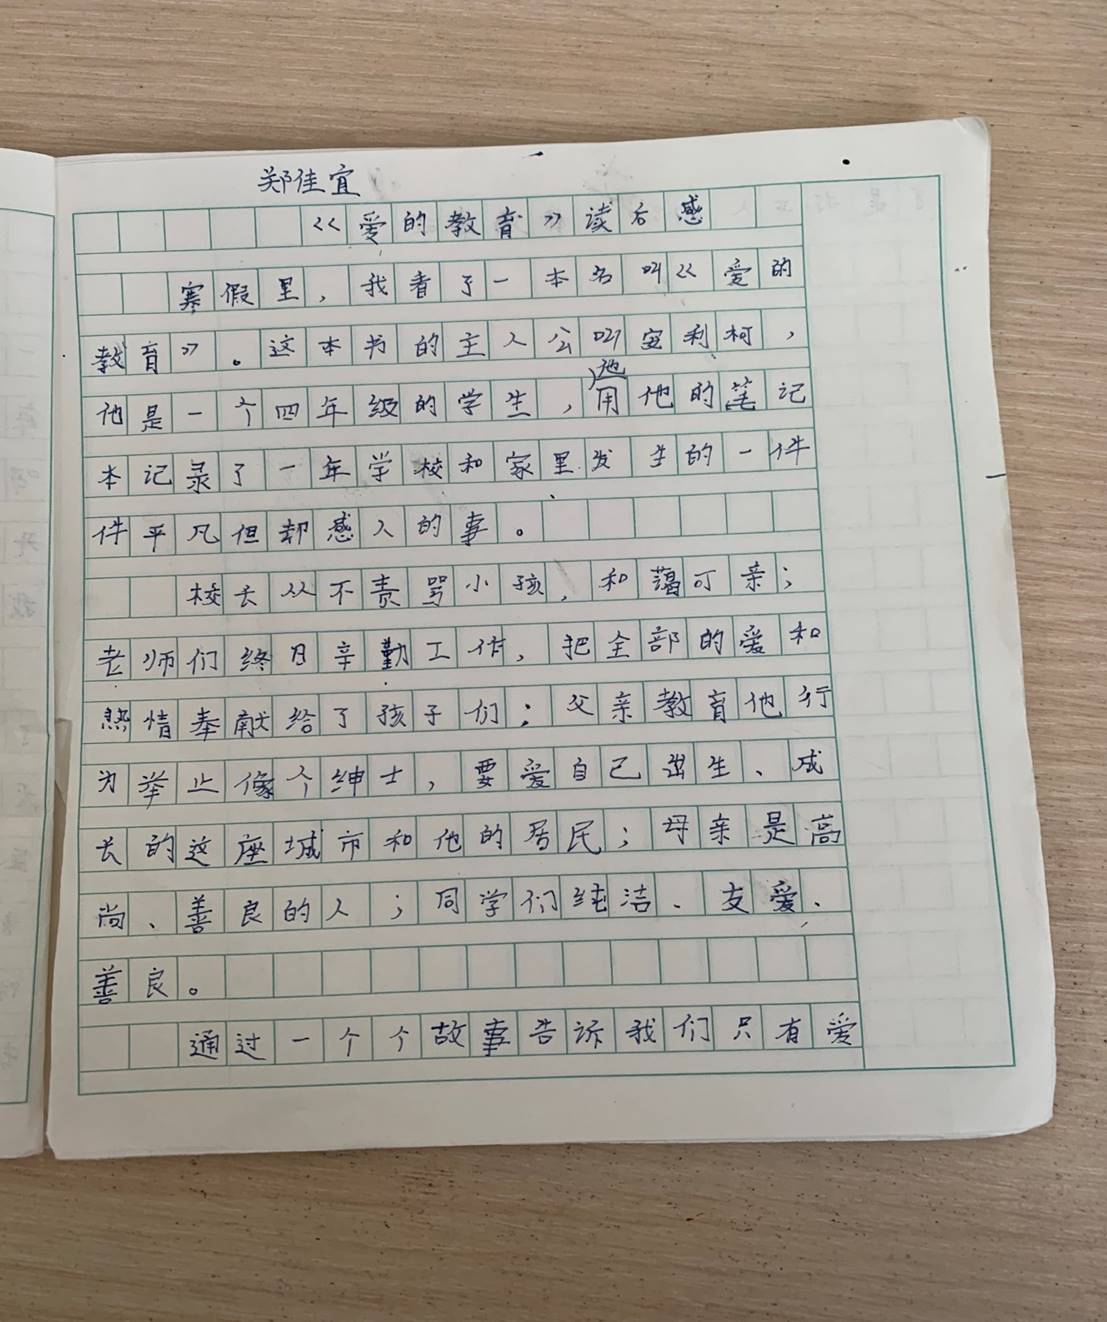 郑佳宜
《爱的教育》读后感
寒假里，我看了一本名叫《爱的
教育》。这本书的主人公叫安利柯，
他是一个四年级的学生，他用他的笔记
本记录了一年学校和家里发生的一件
件平凡但却感人的事。
校长从不责骂小孩，和蔼可亲；
老师们终日辛勤工作，把全部的爱和
热情奉献给了孩子们；父亲教育他行
为举止像个绅士，要爱自己出生、成
长的这座城市和他的居民；母亲是高
尚、善良的人；同学们纯洁、友爱、
善良。
通过一个个故事告诉我们只有爱